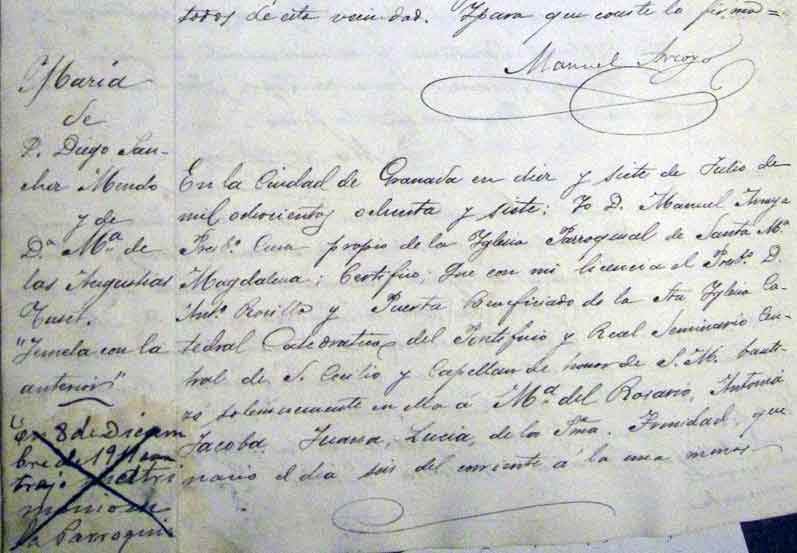 todos de esta vecindad. Y para que conste lo firma=
Manuel Arroyo
Maria
de
D. Diego San-
chez Mendo
y de
D.ª M.ª de
las Angustias
Tuset.
"Jemela con la
anterior"
"en 8 de Diciem
bre de 1911 con
trajo matri
monio en
la Parroqui
En la Ciudad de Granada en diez y siete de Julio de
mil ochocientos ochenta y siete: Yo D. Manuel
Presb.º Cura propio de la Yglesia Parroquial de Santa M.ª
Magdalena; Certifico: Que con mi licencia el Presb.º D.
Ant.º Bonilla y Puerta Beneficiado de la Sta Yglesia Ca-
tedral Catedratico del Pontificio y Real Seminario Cen-
tral de S. Cecilio y Capellan de honor de S. M. bauti-
zó solemnemente en ella á M.ª del Rosario, Antonia
Jacoba, Juana, Lucia, de la Sma. Trinidad, que
nacio el dia seis del corriente á la una menos